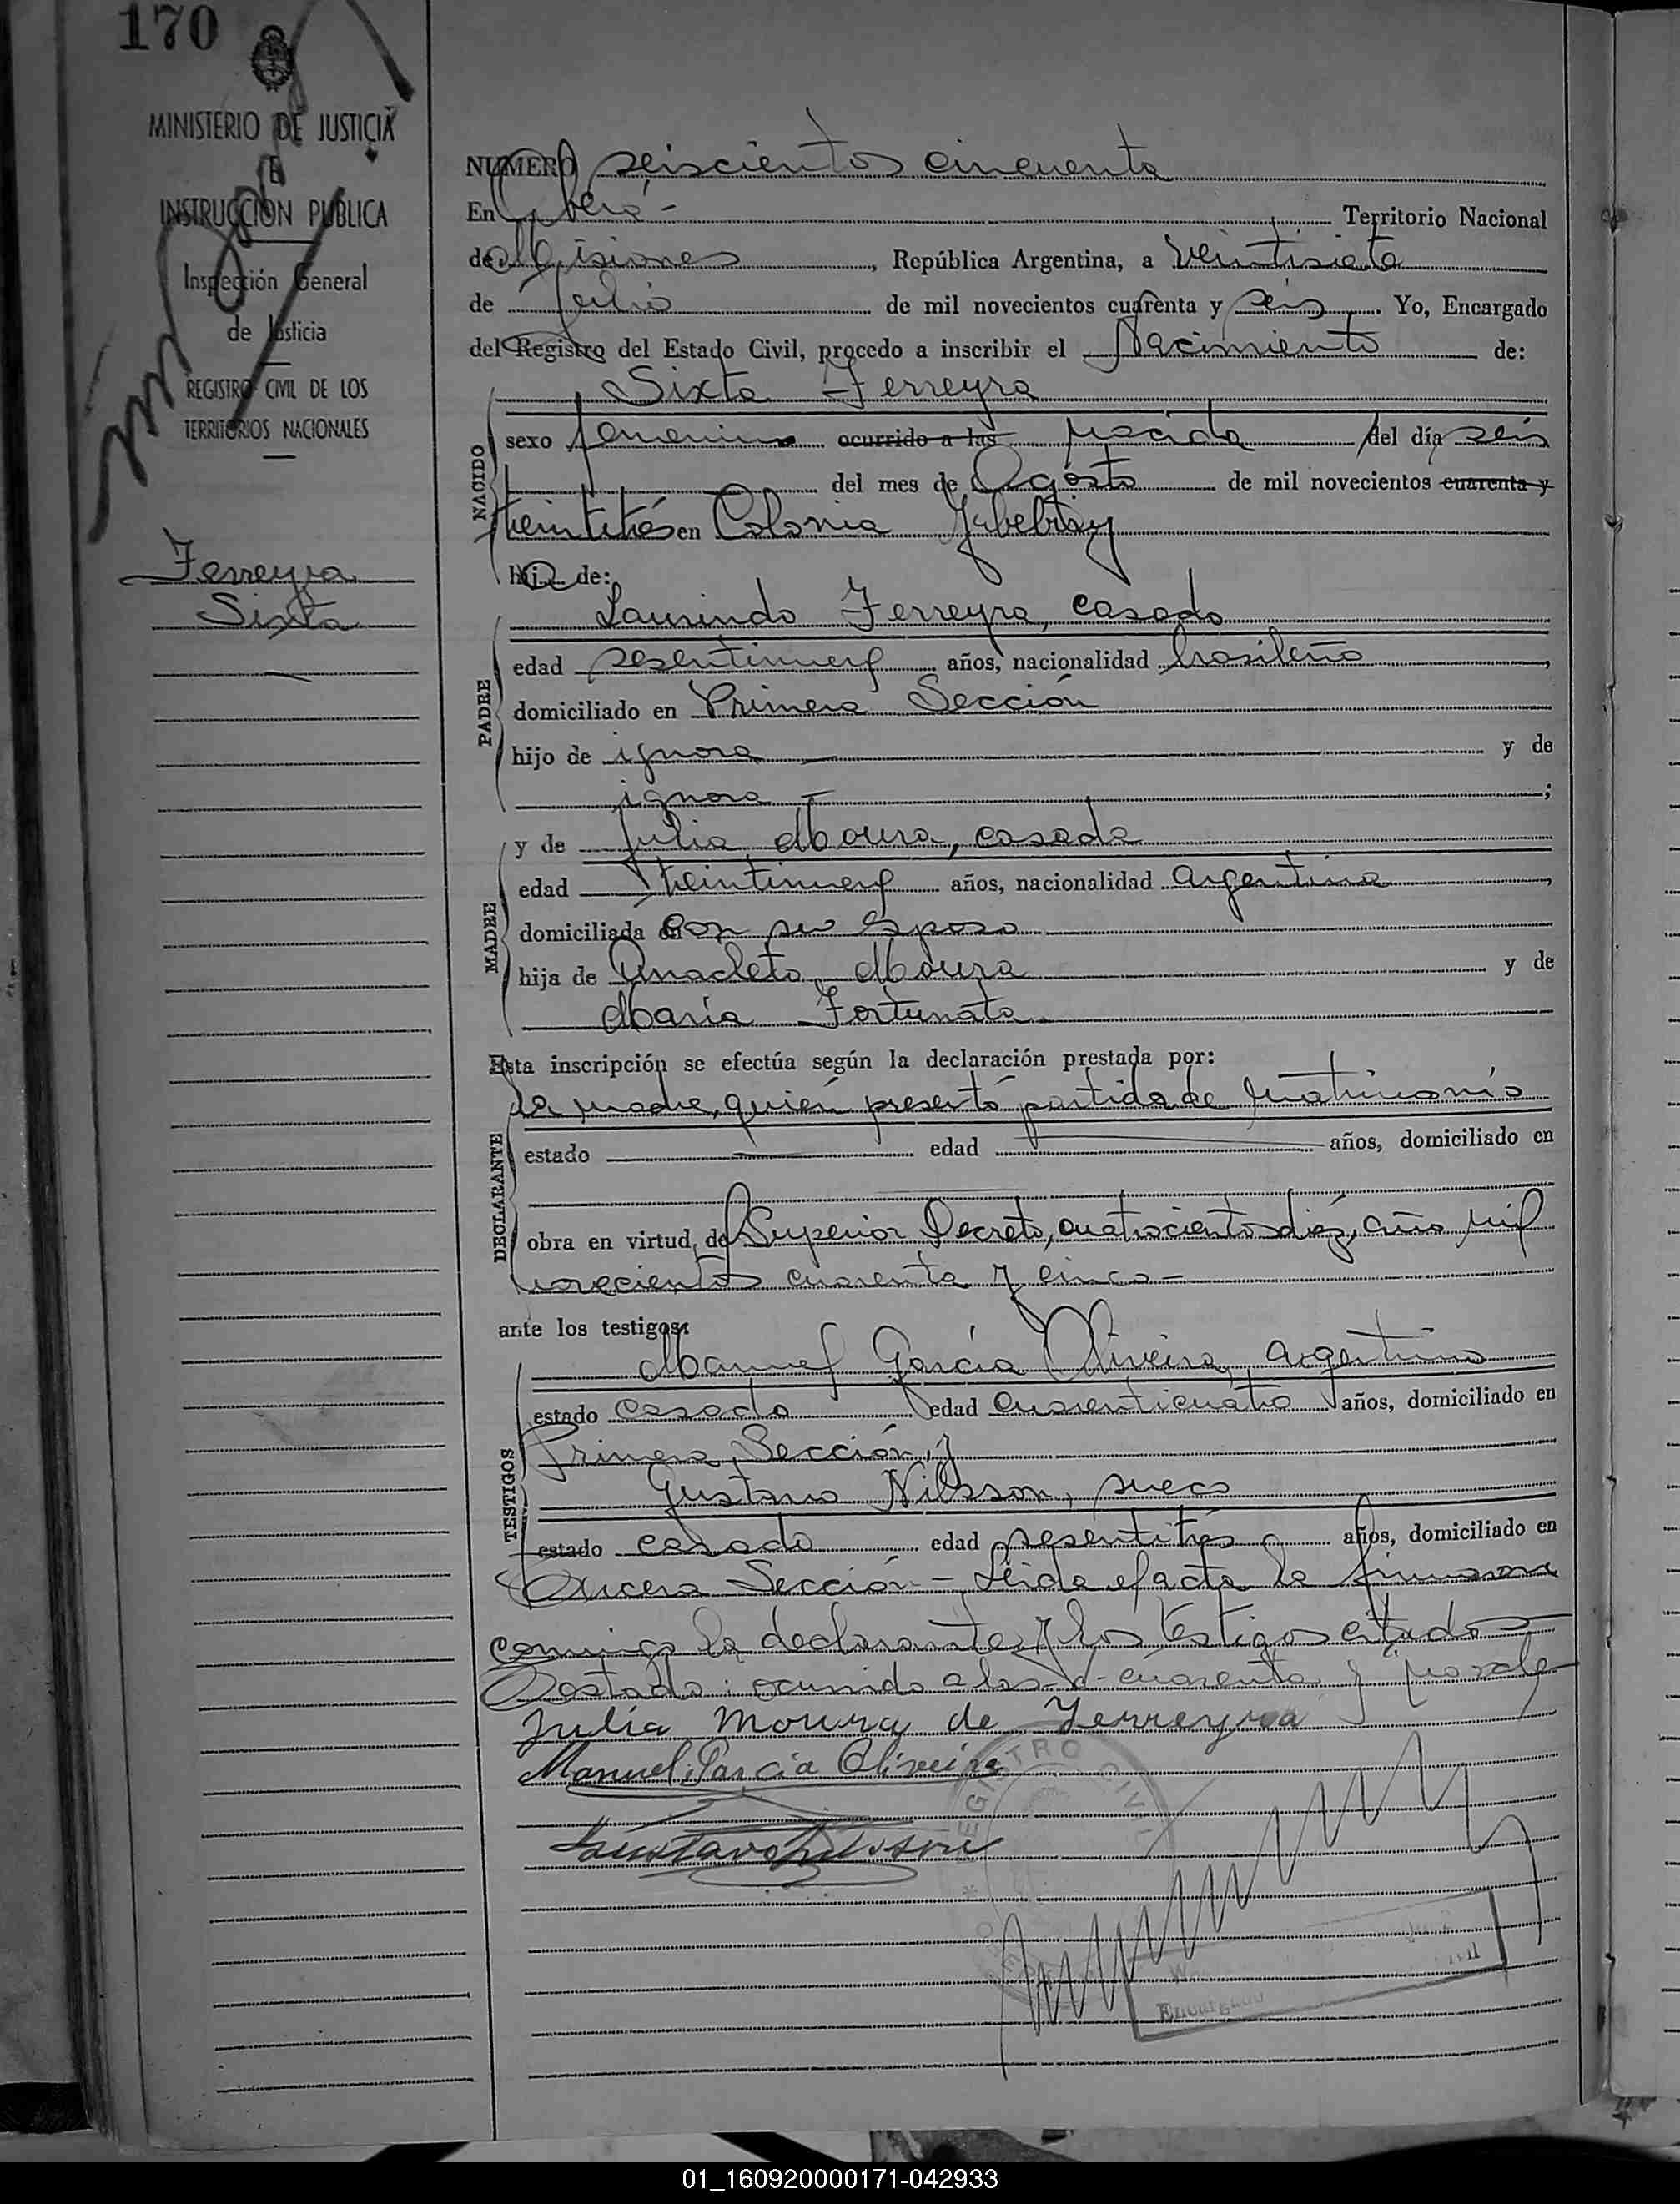 170
MINISTERIO DE JUSTICIA
E
INSTRUCCION PUBLICA
Inspección General
de Justicia
REGISTRO CIVIL DE LOS
TERRITORIOS NACIONALES
Ferreyra
Sixta
NUMERO seiscientos cincuenta
En Oberá - Territorio Nacional
de Misiones, República Argentina, a veintisiete
de Julio de mil novecientos cuarenta y seis. Yo, Encargado
del Registro del Estado Civil, procedo a inscribir el Nacimiento de:
Sixta Ferreyra
NACIDO
sexo femenino ocurrido a las nacida del día seis
del mes de Agosto de mil novecientos cuarenta y
treintitrés en Colonia Yabebiry
hija de:
Laurindo Ferreyra, casado
PADRE
edad sesentinueve años, nacionalidad brasileño
domiciliado en Primera Sección
hijo de ignora y de
ignora - ;
y de Julia Moura, casada
MADRE
edad treintinueve años, nacionalidad argentina
domiciliada en con su esposo
hija de Anacleto Moura y de
María Fortunata
Esta inscripción se efectúa según la declaración prestada por:
la madre, quién presentó partida de matrimonio
DECLARANTE
estado edad años, domiciliado en
obra en virtud de Superior Decreto, cuatrocientos diez, año mil
novecientos cuarenta y cinco -
ante los testigos:
Manuel García Oliveira, argentino
TESTIGOS
estado casado edad cuarenticuatro años, domiciliado en
Primera Sección, y
Gustavo Nilsson, sueco
estado casado edad sesentitrés años, domiciliado en
Tercera Sección - Leída el acta la firmaron
conmigo la declarante y los testigos citados
Testado: ocurrido a las - d - cuarenta y no vale
Julia Moura de Ferreyra
Manuel García Oliveira
Gustavo Nilsson
REGISTRO CIVIL
Encargado
01_160920000171-042933